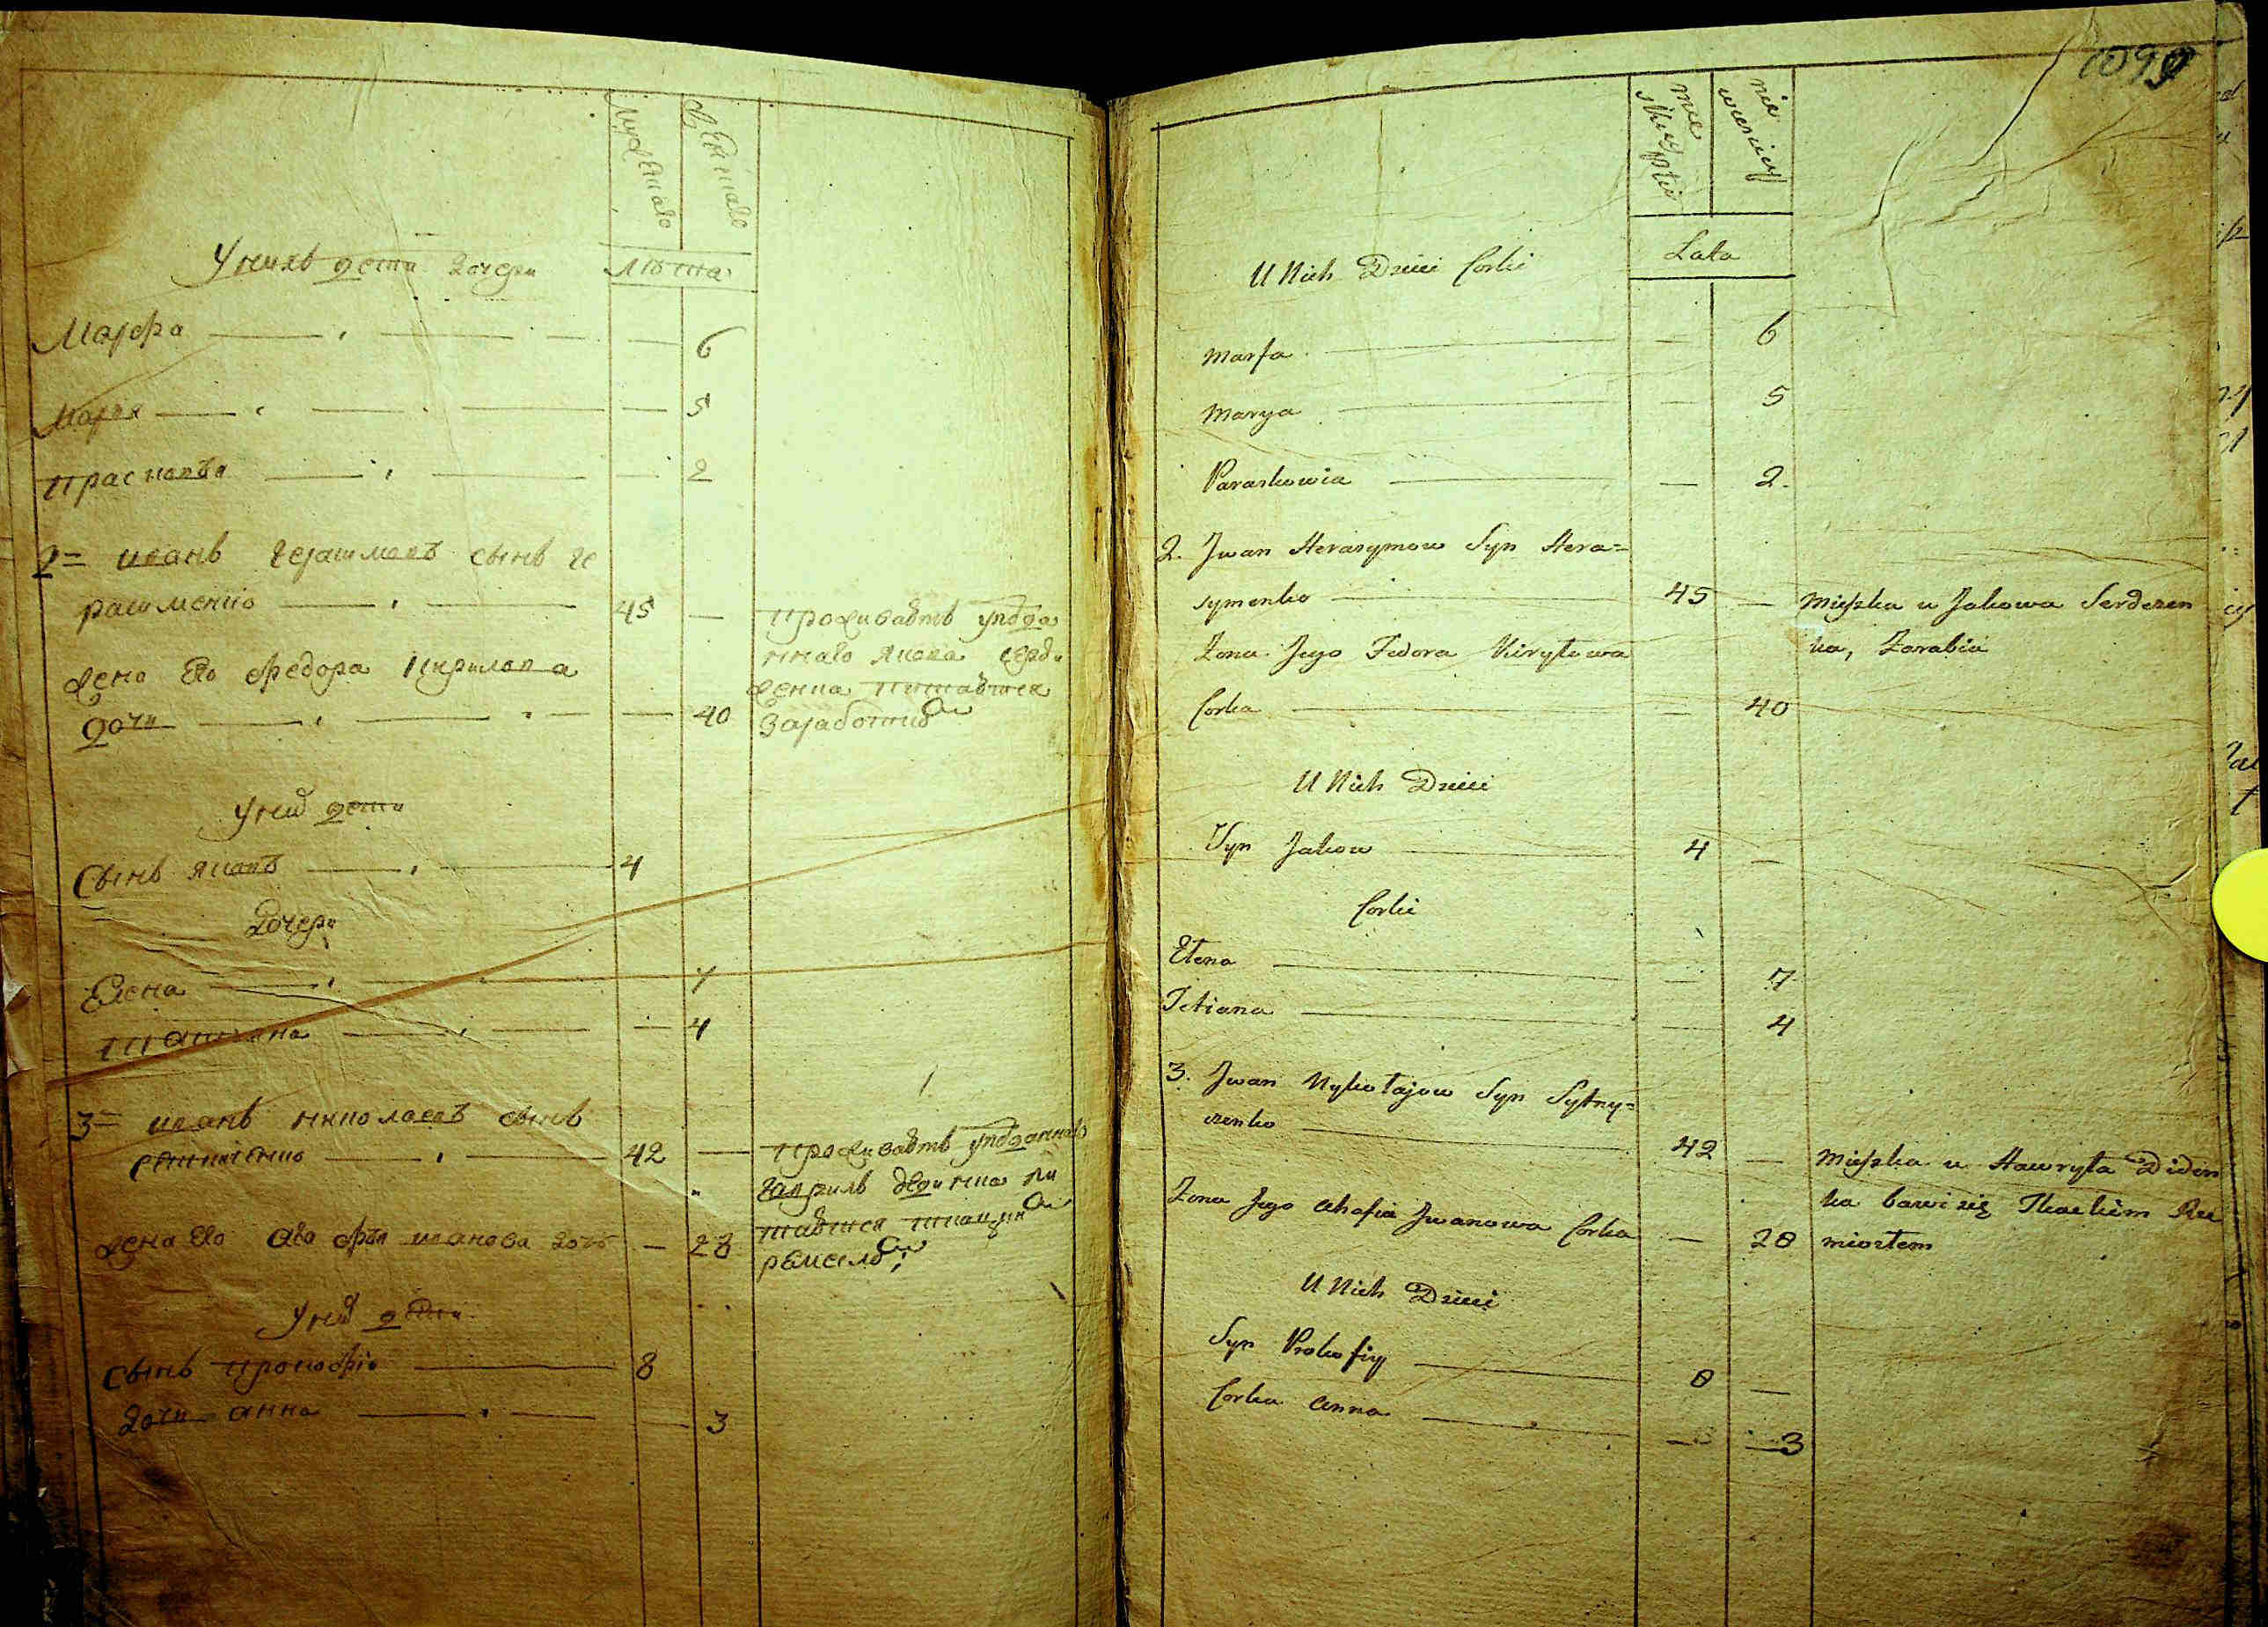 Мужеска
Женска
Лѣта
У нихъ дети дочери
Марфа 6
Марья 5
Прасковья 2
2 = иванъ герасимовъ сынъ ге
расименко 45 —
проживаетъ уподда
ннаго якова серди
женка питается
заработкой
жена его федора кирилова
дочи 40
У ний дети
Сынъ яковъ 4
Дочери
Елена 7
татияна 4
3 = иванъ николаевъ сынъ
42 —
проживаетъ уподданного
гаврилы пи
тается ткацкой
ремеслой;
жена его агафья иванова дочъ — 28
У ний дети
сынъ прокофiй 8
дочи анна — 3
1099
męskiej płci
niewieściej
Lata
U Nich Dzieci Corki
Marfa — 6
Marya — 5
Paraskowia — 2.
2. Jwan Herasymow Syn Hera=
symenko 45 —
Mięszka u Jakowa Serdezen
ka, Zarabia
Zona Jego Fedora Kiryłowa
Corka — 40
U Nich Dzieci
Syn Jakow 4 —
Corki
Ełena — 7
Tetiana — 4
3. Jwan Mykołajow Syn Sytny=
czenko 42 —
Mięszka u Hawryła Diden
ka bawi się Tkackim Rze
miosłem
Zona Jego Ahafia Jwanowa Corka — 28
U Nich Dzieci
Syn Prokofiy 8 —
Corka Anna — 3